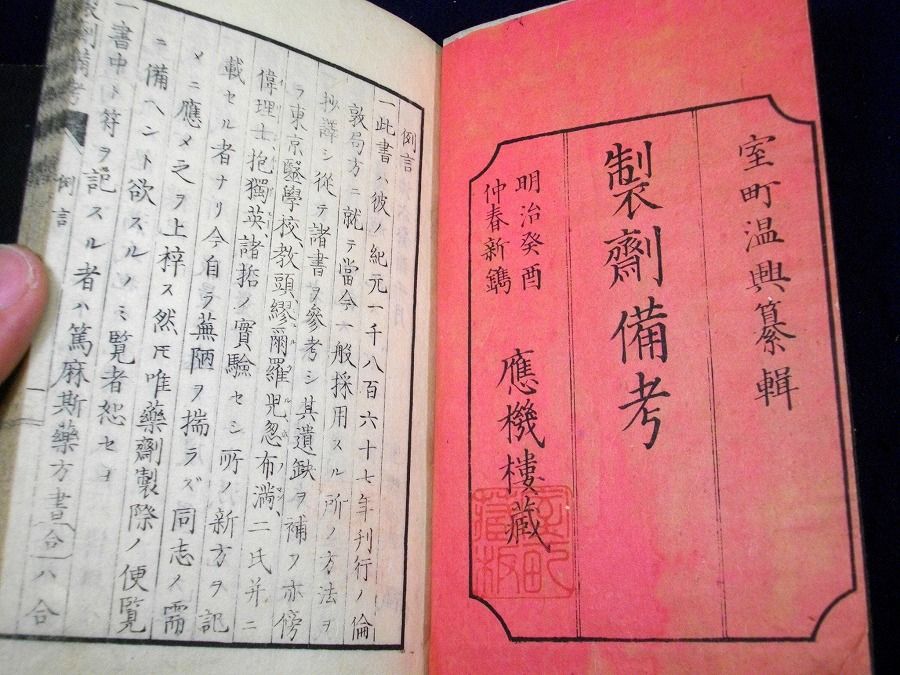 室町温興纂輯
製劑備考
明治癸酉
仲春新鐫
應機樓藏
室町
藏板
例言
一此書ハ彼ノ紀元一千八百六十七年刊行ノ倫
敦局方ニ就テ當今一般採用スル所ノ方法ヲ
抄譯シ從テ諸書ヲ參考シ其遺缺ヲ補フ亦傍
ヲ東京醫學校教頭繆爾羅児忽布満二氏并ニ
偉理士抱獨英諸哲ノ實驗セシ所ノ新方ヲ記
載セル者ナリ今自ラ蕪陋ヲ揣ラズ同志ノ需
メニ應メ之ヲ上梓ス然モ唯藥劑製際ノ便覧
ニ備ヘント欲スルノミ覧者恕セヨ
一書中ト符ヲ記スル者ハ篤麻斯藥方書合八合
製劑備考
例言
一